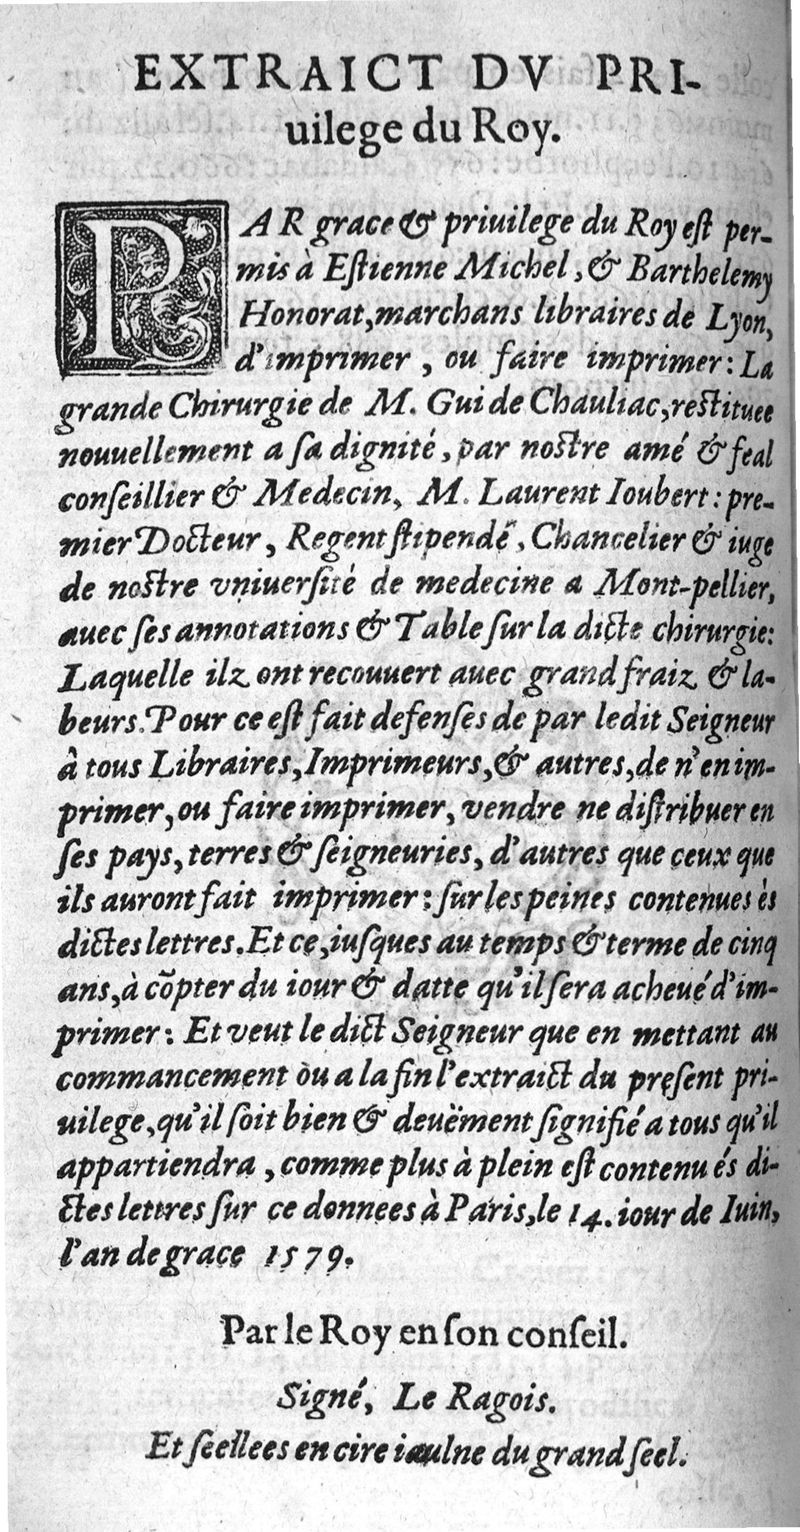 EXTRAICT DV PRI-
uilege du Roy.
PAR grace & priuilege du Roy eſt per-
mis à Eſtienne Michel, & Barthelemy
Honorat, marchans libraires de Lyon,
d'imprimer, ou faire imprimer: La
grande Chirurgie de M. Gui de Chauliac, reſtituee
nouuellement a ſa dignité, par noſtre amé & feal
conſeillier & Medecin, M. Laurent Ioubert: pre-
mier Docteur, Regent ſtipendé, Chancelier & iuge
de noſtre vniuerſité de medecine a Mont-pellier,
auec ſes annotations & Table ſur la dicte chirurgie:
Laquelle ilz ont recouuert auec grand fraiz & la-
beurs. Pour ce eſt fait defenſes de par ledit Seigneur
â tous Libraires, Imprimeurs, & autres, de n'en im-
primer, ou faire imprimer, vendre ne diſtribuer en
ſes pays, terres & ſeigneuries, d'autres que ceux que
ils auront fait imprimer: ſur les peines contenues ès
dictes lettres. Et ce, iuſques au temps & terme de cinq
ans, à cõpter du iour & datte qu'il ſera acheué d'im-
primer: Et veut le dict Seigneur que en mettant au
commancement òu a la fin l'extraict du preſent pri-
uilege, qu'il ſoit bien & deuëment ſignifié a tous qu'il
appartiendra, comme plus à plein eſt contenu és di-
ctes lettres ſur ce donnees à Paris, le 14. iour de Iuin,
l'an de grace 1579.
Par le Roy en ſon conſeil.
Signé, Le Ragois.
Et ſeellees en cire iaulne du grand ſeel.